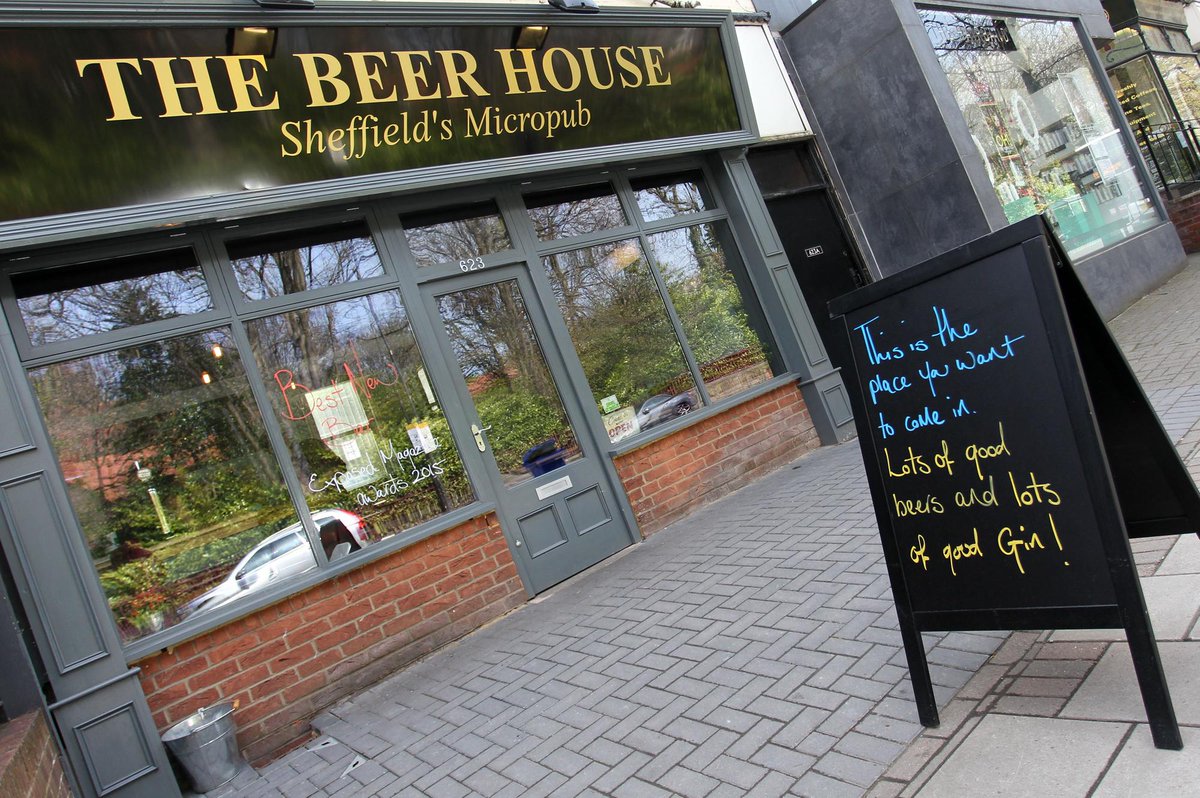 THE BEER HOUSE
Sheffield's Micropub
623
623A
Best New
Exposed Magazine
awards 2015
OPEN
This is the
place you want
to come in.
Lots of good
beers and lots
of good Gin!